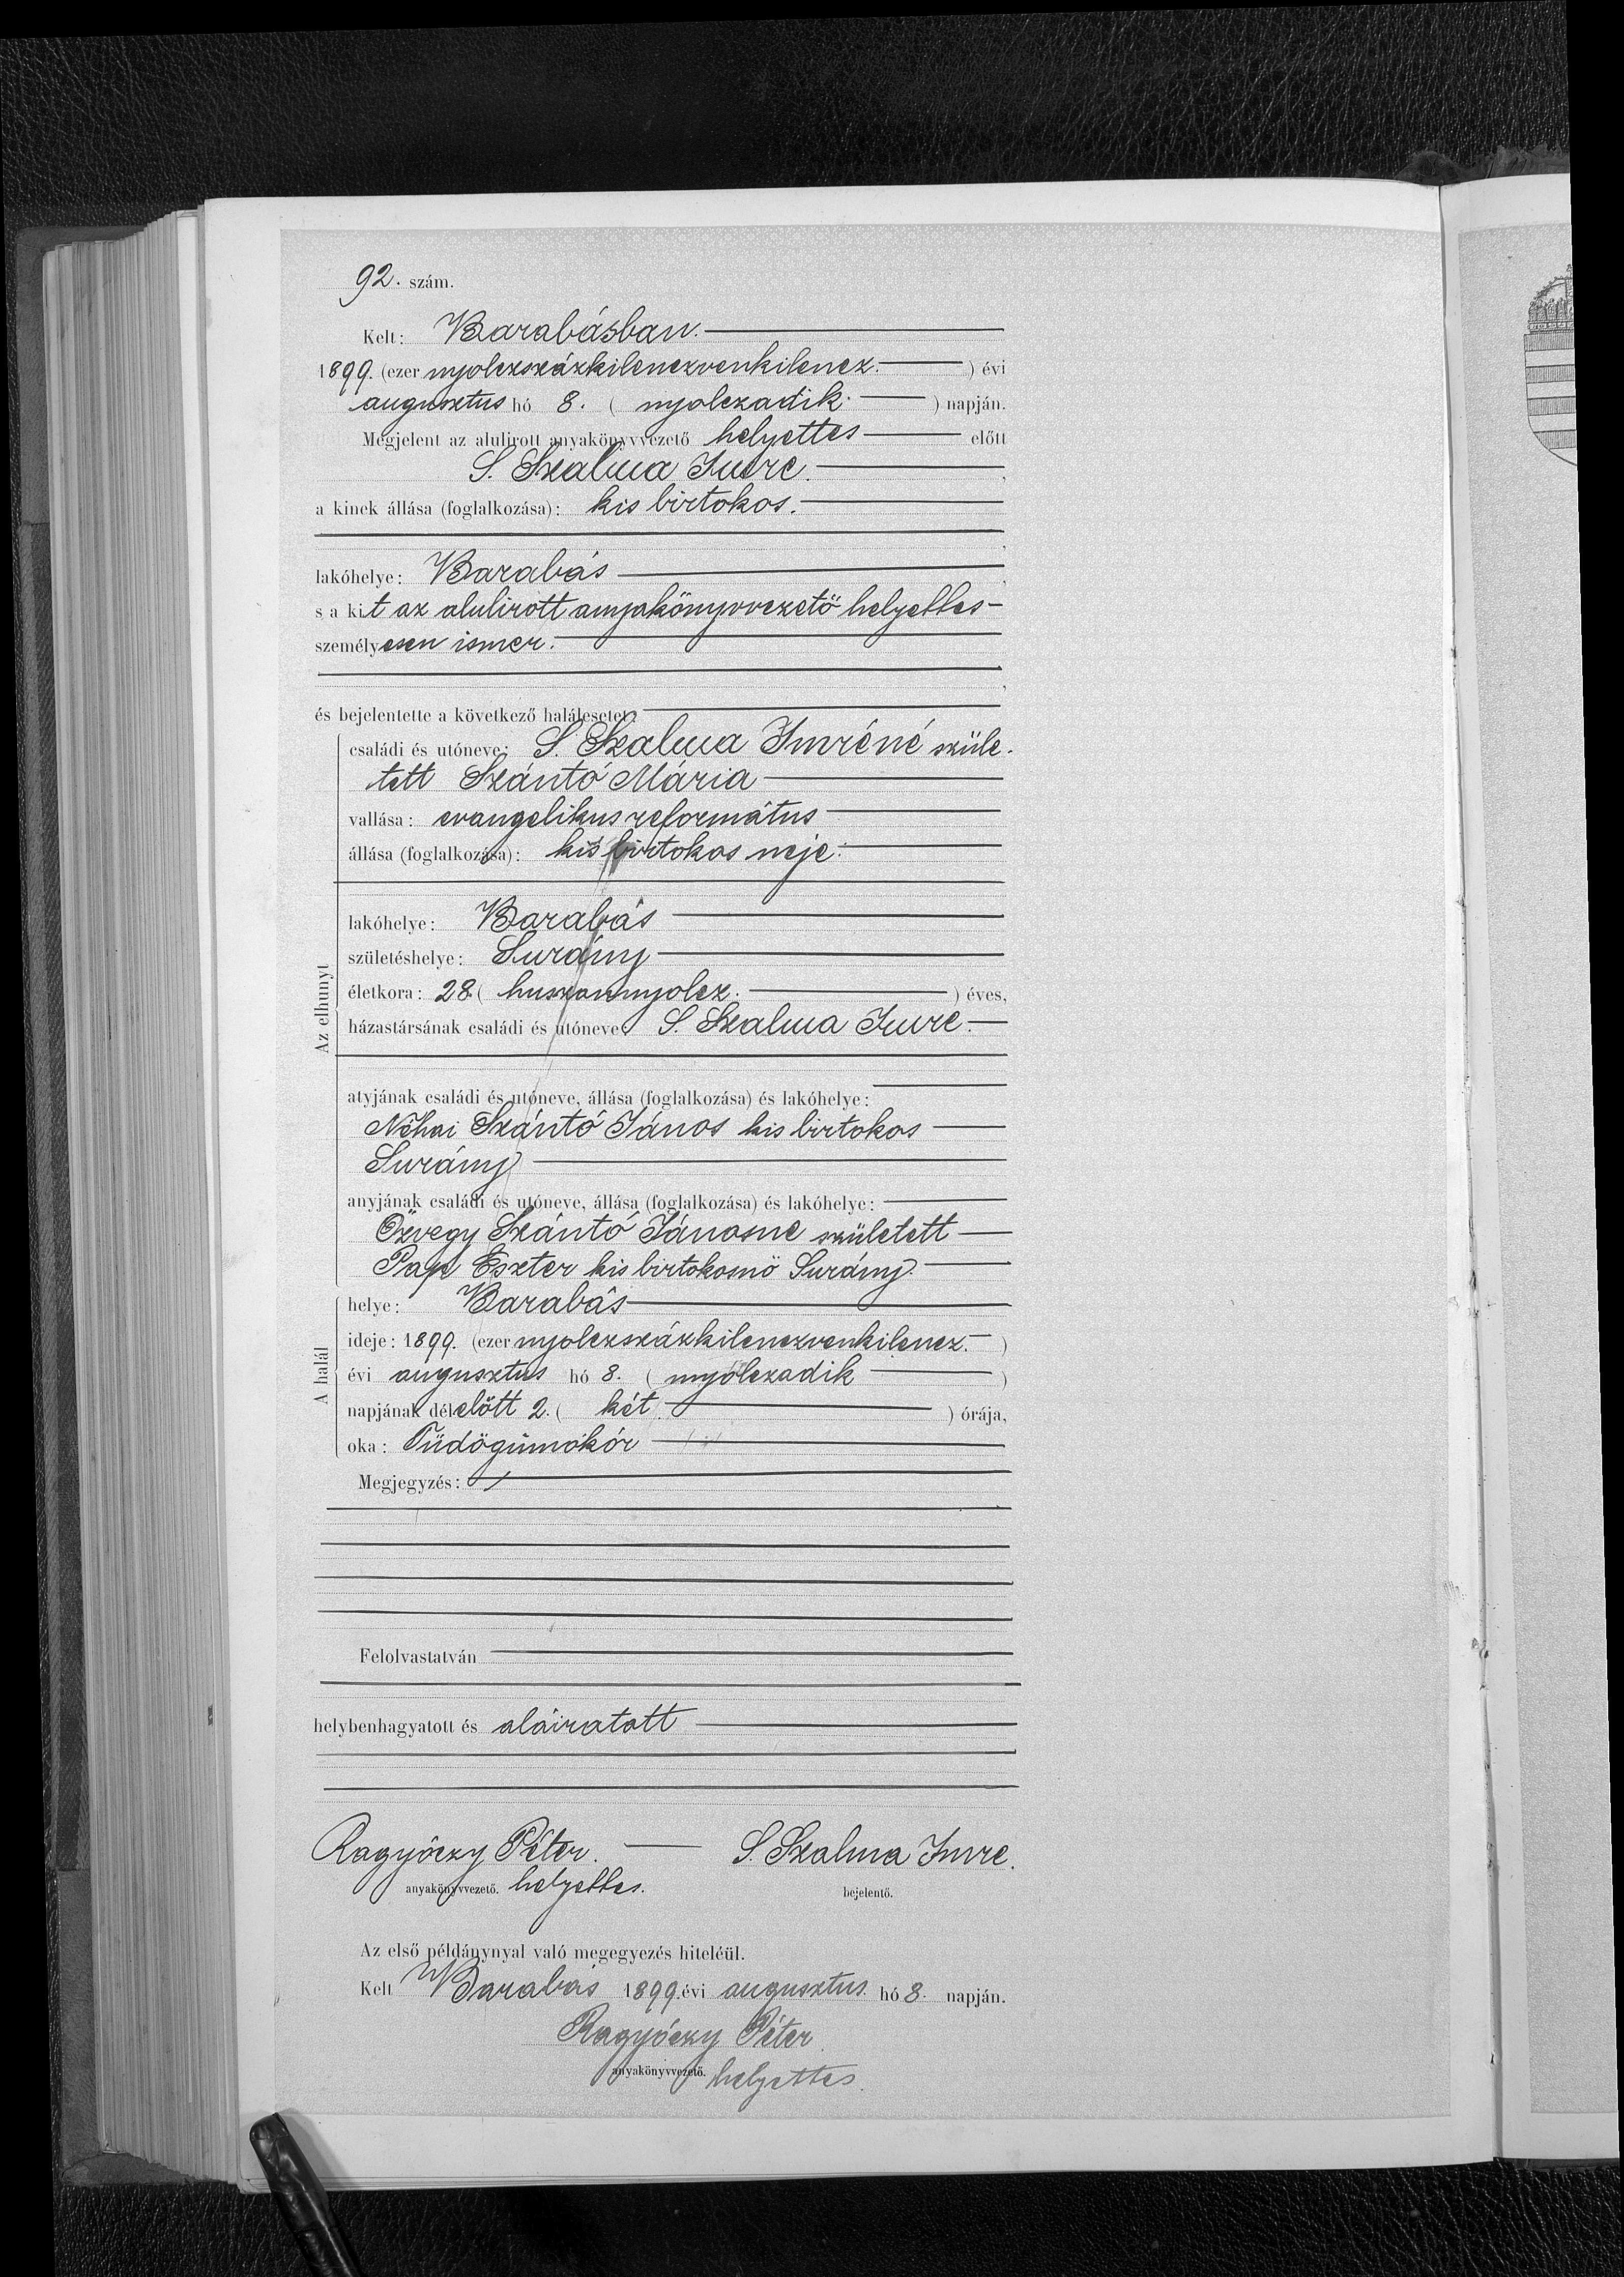 92. szám.
Kelt: Barabásban.
1899. (ezer nyolczszázkilenczvenkilencz. ) évi
augusztus hó 8. ( nyolczadik. ) napján.
Megjelent az alulirott anyakönyvvezető helyettes előtt
S. Szalma Imre.
a kinek állása (foglalkozása): kis birtokos.
lakóhelye: Barabás
s a kit az alulirott anyakönyvvezető helyettes
személyesen ismer.
és bejelentette a következő halálesetet:
Az elhunyt
családi és utóneve: S. Szalma Imréné szüle-
tett Szántó Mária
vallása: evangelikus református
állása (foglalkozása): kis birtokos neje.
lakóhelye: Barabás
születéshelye: Surány
életkora: 28. ( huszonnyolcz. ) éves,
házastársának családi és utóneve: S. Szalma Imre.
atyjának családi és utóneve, állása (foglalkozása) és lakóhelye:
Néhai Szántó János kis birtokos
Surány
anyjának családi és utóneve, állása (foglalkozása) és lakóhelye:
Özvegy Szántó Jánosne született
Pap Eszter kis birtokosnö Surány.
A halál
helye: Barabás
ideje: 1899. (ezer nyolczszázkilenczvenkilencz. )
évi augusztus hó 8. ( nyolczadik )
napjának délelőtt 2. ( két. ) órája,
oka: Tüdögümökór
Megjegyzés:
Felolvastatván
helybenhagyatott és aláiratott
Ragyóczy Péter. S. Szalma Imre.
anyakönyvvezető. helyettes. bejelentő.
Az első példánynyal való megegyezés hiteléül.
Kelt Barabás 1899. évi augusztus. hó 8. napján.
Ragyóczy Péter.
anyakönyvvezető. helyettes.